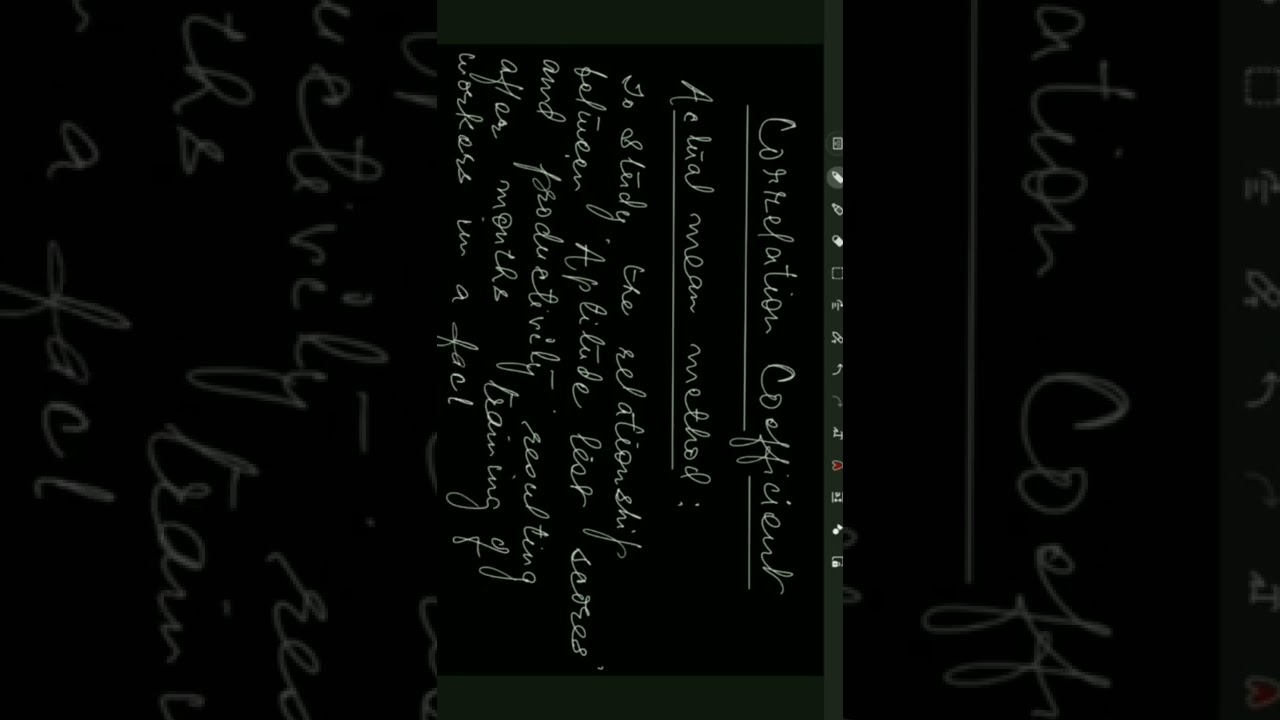 Correlation Coefficient
Actual mean method :
To study the relationship
between 'Aptitude test scores'
and productivity resulting
after months training of
workers in a fact